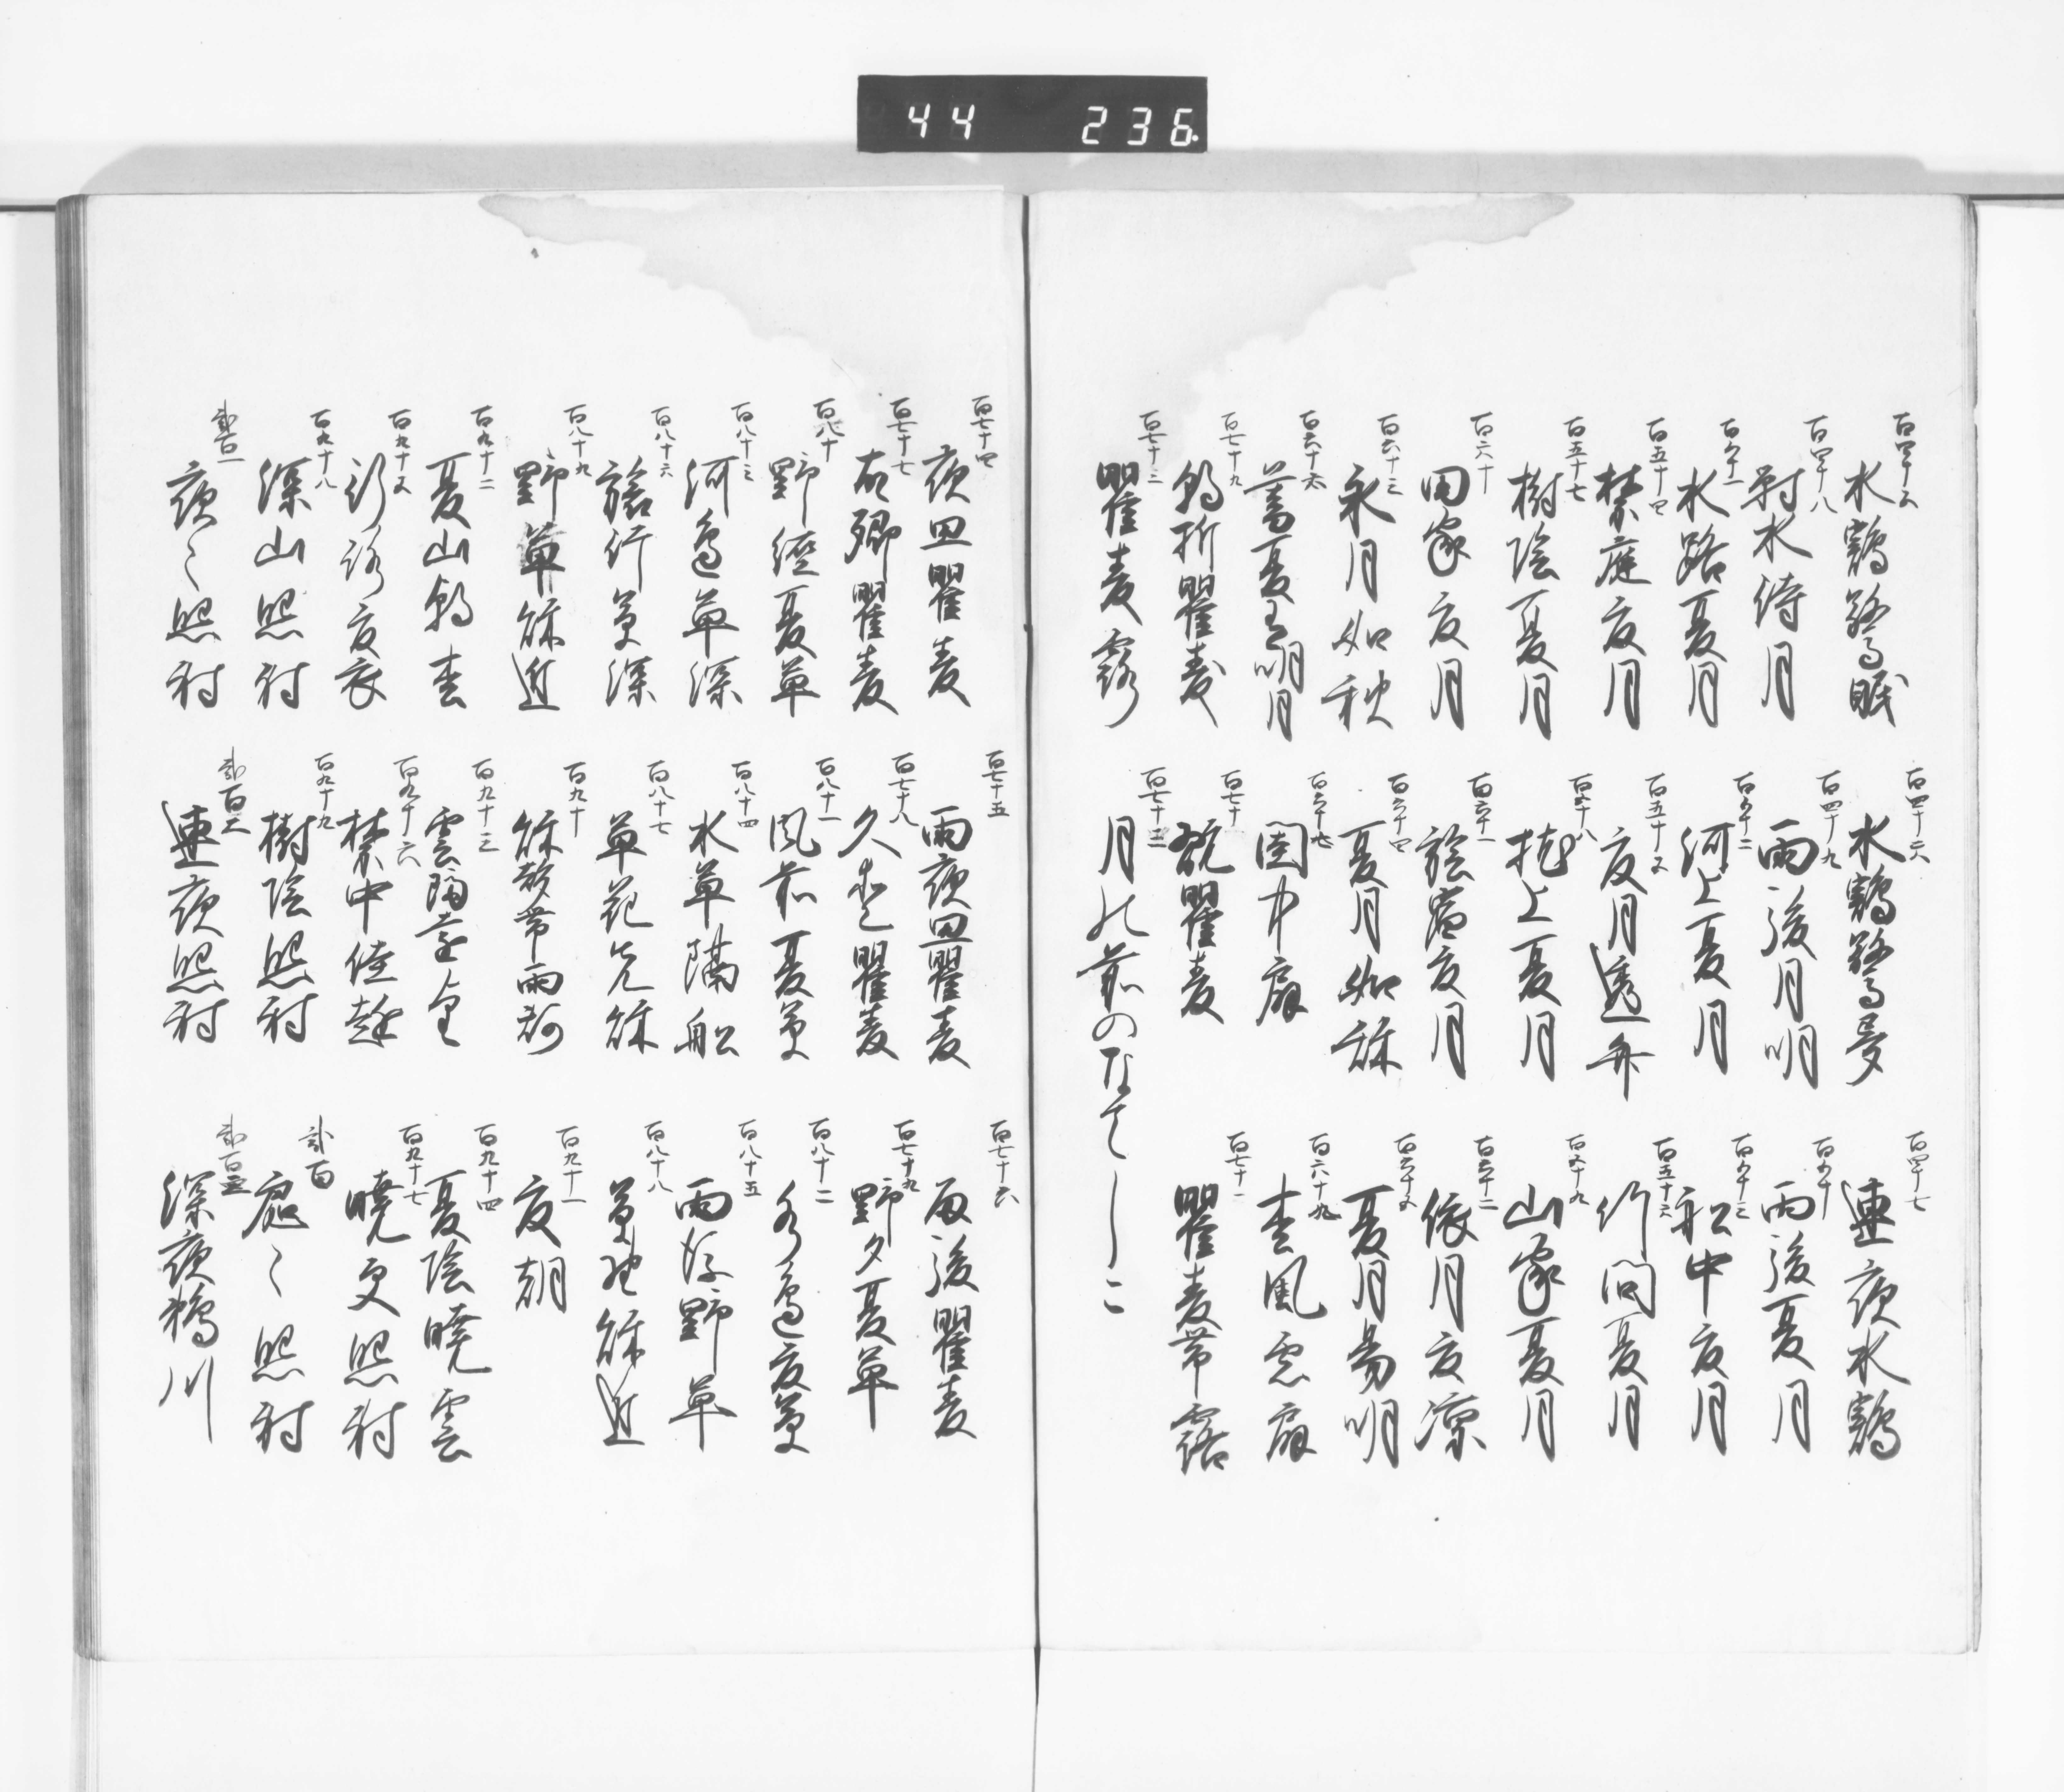 44 236.
百四十五 水鶏驚眠
百四十六 水鶏驚夢
百四十七 連夜水鶏
百四十八 対水待月
百四十九 雨後月明
百五十 雨後夏月
百五十一 水路夏月
百五十二 河上夏月
百五十三 船中夏月
百五十四 禁庭夏月
百五十五 夏月透竹
百五十六 竹間夏月
百五十七 樹陰夏月
百五十八 杜上夏月
百五十九 山家夏月
百六十 田家夏月
百六十一 旅宿夏月
百六十二 依月夏涼
百六十三 氷月如秋
百六十四 夏月如秋
百六十五 夏月易明
百六十六 蓄夏玉明月
百六十七 閨中扇
百六十九 松風忘扇
百七十九 朝折瞿麦
百七十 翫瞿麦
百七十一 瞿麦帯露
百七十二 瞿麦露
百七十三 月の前のなてしこ
百七十四 夜思瞿麦
百七十五 雨夜思瞿麦
百七十六 雨後瞿麦
百七十七 故郷瞿麦
百七十八 久愛瞿麦
百七十九 野夕夏草
百八十 野経夏草
百八十一 風前夏草
百八十二 水辺夏草
百八十三 河辺草深
百八十四 水草隔船
百八十五 雨後野草
百八十六 旅行草深
百八十七 草花先秋
百八十八 草野秋近
百八十九 野草秋近
百九十 秋欲帯雨
百九十一 夏朝
百九十二 夏山朝
百九十三 雲隔遠
百九十四 夏陰暁雲
百九十五 行路夏衣
百九十六 禁中佳趣
百九十七 暁更照射
百九十八 深山照射
百九十九 樹陰照射
弐百 処々照射
弐百一 夜々照射
弐百二 連夜照射
弐百三 深夜鵜川